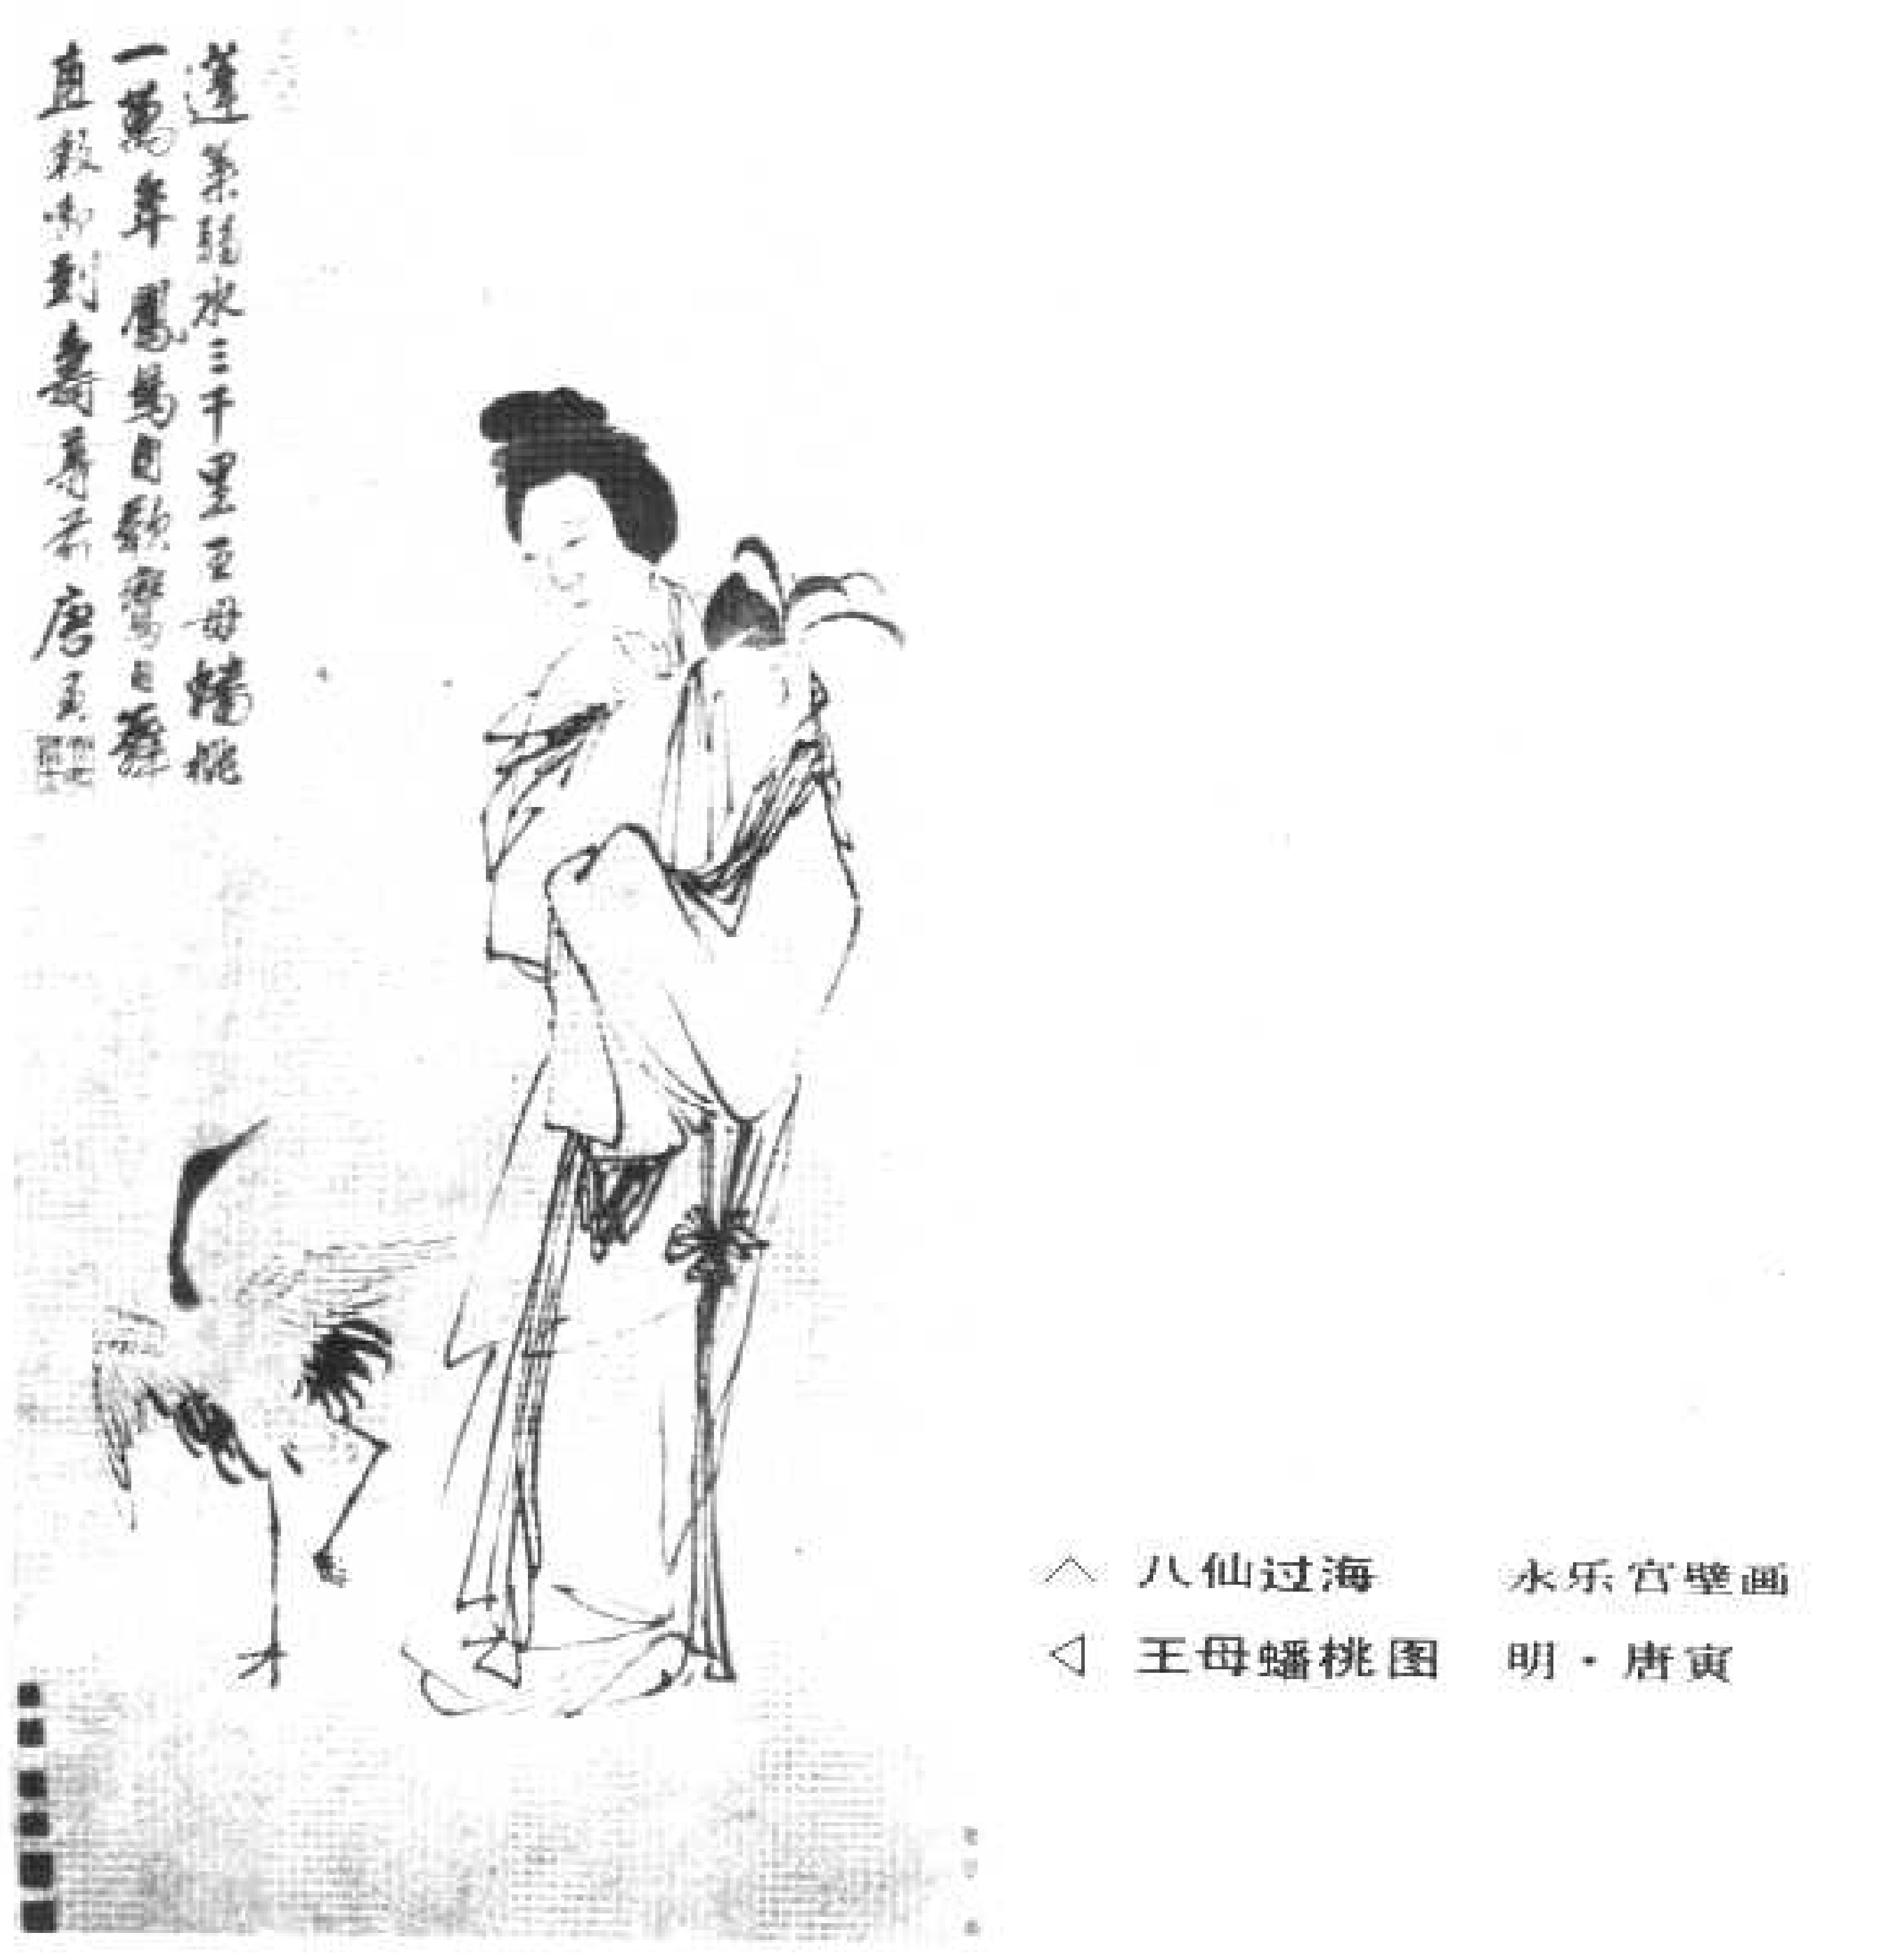 蓬莱水三千里王母蟠桃
一萬年鳳鳥自歌鸞自舞
直到壽尊前唐寅
八仙过海 永乐宫壁画
王母蟠桃图 明·唐寅